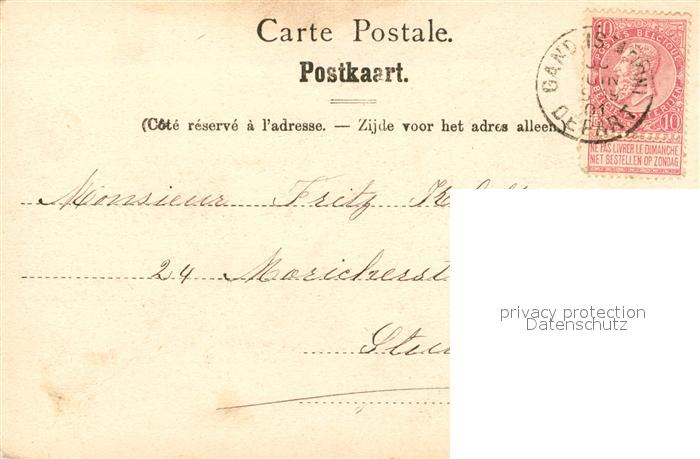 Carte Postale.
Postkaart.
(Côté réservé à l'adresse. — Zijde voor het adres alleen.
10 10
NE PAS LIVRER LE DIMANCHE
NIET BESTELLEN OP ZONDAG
GAND
JUIN
01
DEPART
Monsieur Fritz
24
privacy protection
Datenschutz